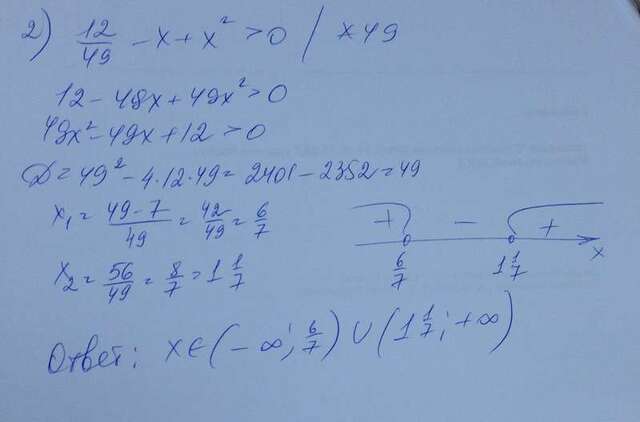 2) 12/49 - x + x² > 0 / *49
12 - 49x + 49x² > 0
49x² - 49x + 12 > 0
D = 49² - 4·12·49 = 2401 - 2352 = 49
x₁ = (49-7)/49 = 42/49 = 6/7
x₂ = 56/49 = 8/7 = 1 1/7
+ - +
6/7 1 1/7 x
Ответ: x∈(-∞; 6/7) ∪ (1 1/7; +∞)